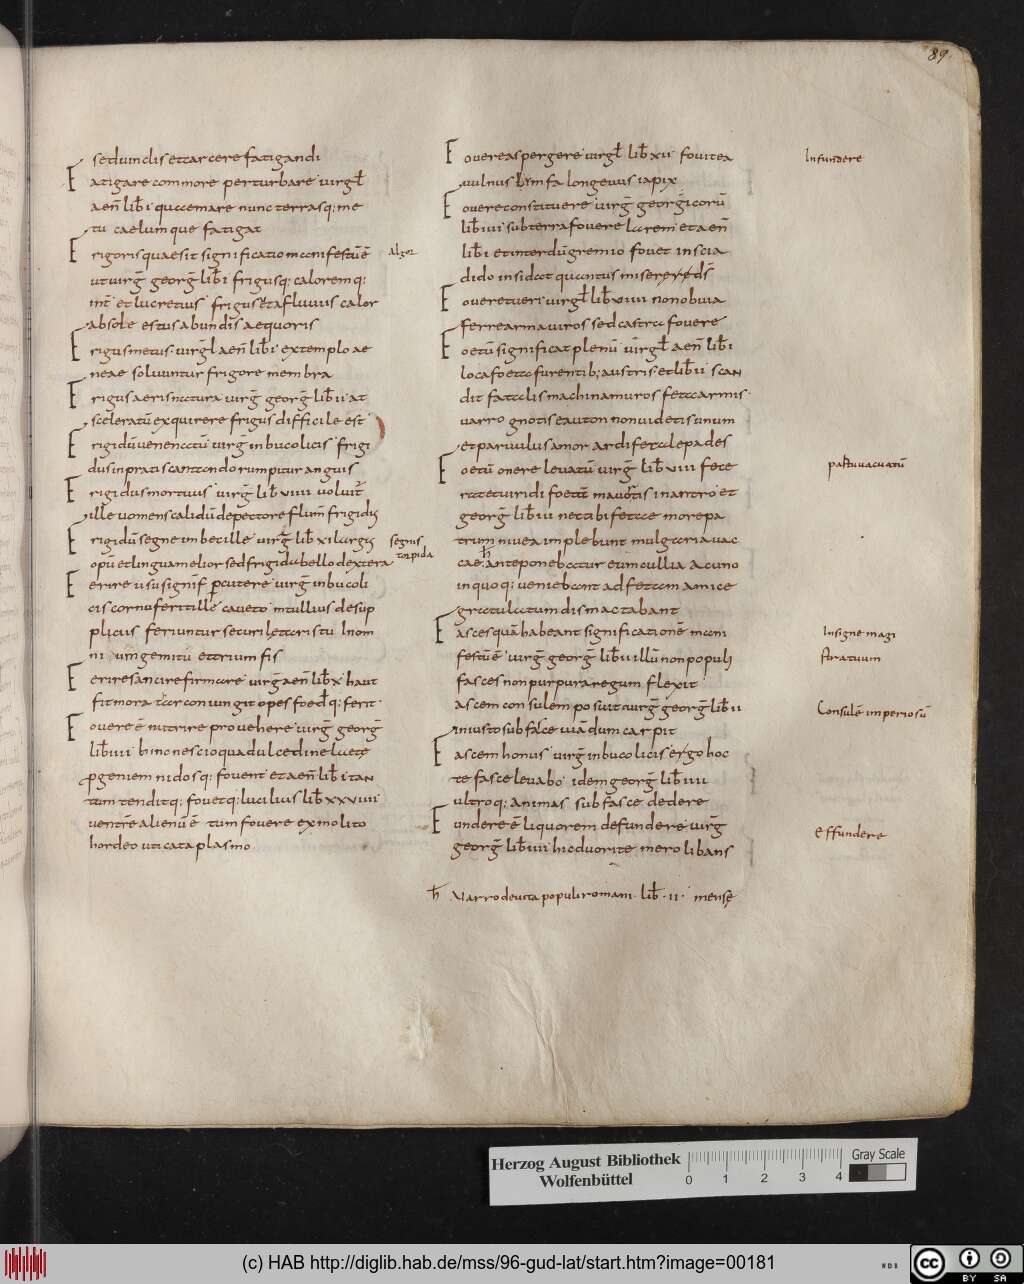 89.
sed uinclis et carcere fatigandi
Fatigare commoue perturbare uirgł
aeñ lib̄ i quae mare nunc terrasq; me
tu caelumque fatigat
Frigoris quaesit significatio manifestū ē
ut uirḡ georḡ lib̄ i frigusq; caloremq;
int̄ et lucretius frigus et a fluuiis calor
absole estus abundis aequoris
Frigus metus uirḡl aeñ lib̄ i extemplo ae
neae soluuntur frigore membra
Frigus aeris natura uirḡ georḡ lib̄ ii at
sceleratū exquirere frigus difficile est
Frigidū uenenatū uirḡ in bucolicis frigi
dus in pratis cantando rumpitur anguis
Frigidus mortuus uirḡ lib̄ uiiii uoluit̄
ille uomens calidū de pectore flum̄ frigidus
Frigidū segne imbecille uirḡ lib̄ xi largus
opū et lingua melior sed frigida bello dextera
Ferire usu signif̄ percutere uirḡ in bucoli
cis cornu ferit ille caueto m tullius de sup
pliciis feriuntur securi
ni um gemitū
Ferire sancire firmare uirḡ aeñ lib̄ x haut
fit mora
Fouere ē nutrire prouehere uirḡ georḡ
lib̄ iiii hinc nescio qua dulcedine laete
progeniem nidosq; fouent et aeñ lib̄ i tan
tum tenditq; fouetq; lucilius lib̄ xxuiiii
uentre alienū ē tum fouere ex molito
hordeo uti cataplasmo
Algor
segnis
torpida
Fouere aspergere uirgł lib̄ xii fouit ea
uulnus limfa longeuus iapix
Fouere constituere uirḡ georgicorū
lib̄ iiii sub terra fouere larem et aeñ
lib̄ i et interdū gremio fouet inscia
dido insidat quantus misere ds̄
Fouere tueri uirgł lib̄ uiiii non obuia
ferre arma uiros sed castra fouere
Foetū significat plenū uirgł aeñ lib̄ i
loca foeta furentib; austris et lib̄ ii scan
dit fatalis machina muros feta armis
uarro gnotis eauton non uidetis unum
et paruulus amor ardifeta lepades
Foetū onere leuatū uirḡ lib̄ uiii fete
rat et uiridi foetā mauortis in antro et
georḡ lib̄ iii nec tibi fetae more pa
trum niuea implebunt mulgaria uac
cae
in quoq: ueniebant ad fetam amicae
gratulatum dis mactabant
Fasces quā habeant significationē mani
festū ē uirḡ georḡ lib̄ ii illū non populi
fasces non purpura regum flexit
Fascem consulem posuit uirḡ georḡ lib̄ ii
iniusto sub fasce uiā dum carpit
Fascem honus uirḡ in bucolicis ego hoc
te fasce leuabo idem georḡ lib̄ iiii
ultroq; animas sub fasce dedere
Fundere ē liquorem defundere uirḡ
georḡ lib̄ iiii hic duorite mero libans
ħ Uarro de uita populi romani. lib̄ · ii · mense
Infundere
partu uacuatū
Insigne magi
stratuum
Consulē imperiosū
Effundere
Herzog August Bibliothek
Wolfenbüttel
0 1 2 3 4
Gray Scale
(c) HAB http://diglib.hab.de/mss/96-gud-lat/start.htm?image=00181
WDB
cc BY SA